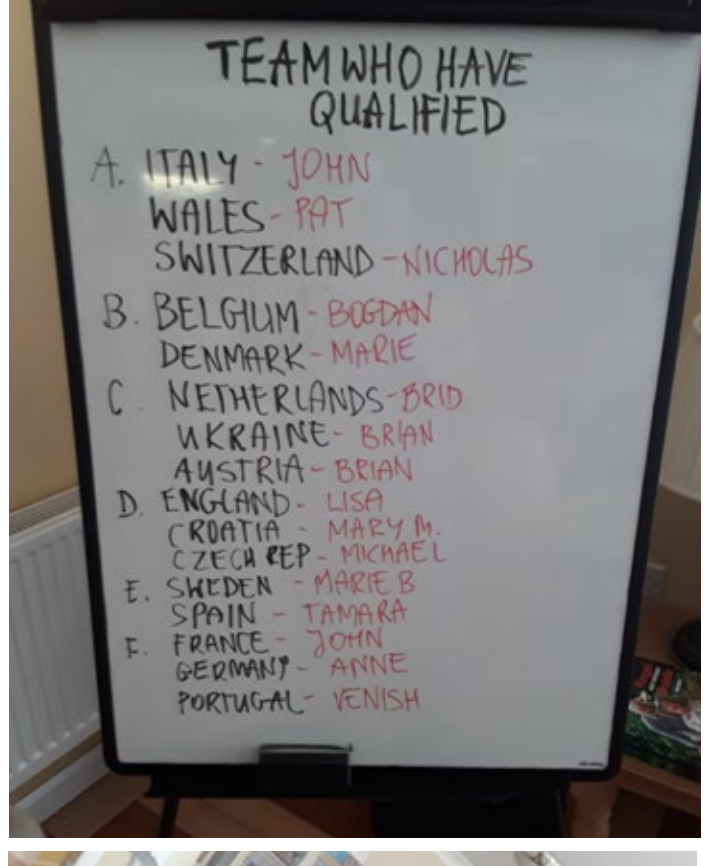 TEAM WHO HAVE
QUALIFIED
A. ITALY - JOHN
WALES - PAT
SWITZERLAND - NICHOLAS
B. BELGIUM - BOGDAN
DENMARK - MARIE
C. NETHERLANDS - BRID
UKRAINE - BRIAN
AUSTRIA - BRIAN
D. ENGLAND - LISA
CROATIA - MARY M.
CZECH REP - MICHAEL
E. SWEDEN - MARIE B
SPAIN - TAMARA
F. FRANCE - JOHN
GERMANY - ANNE
PORTUGAL - VENISH